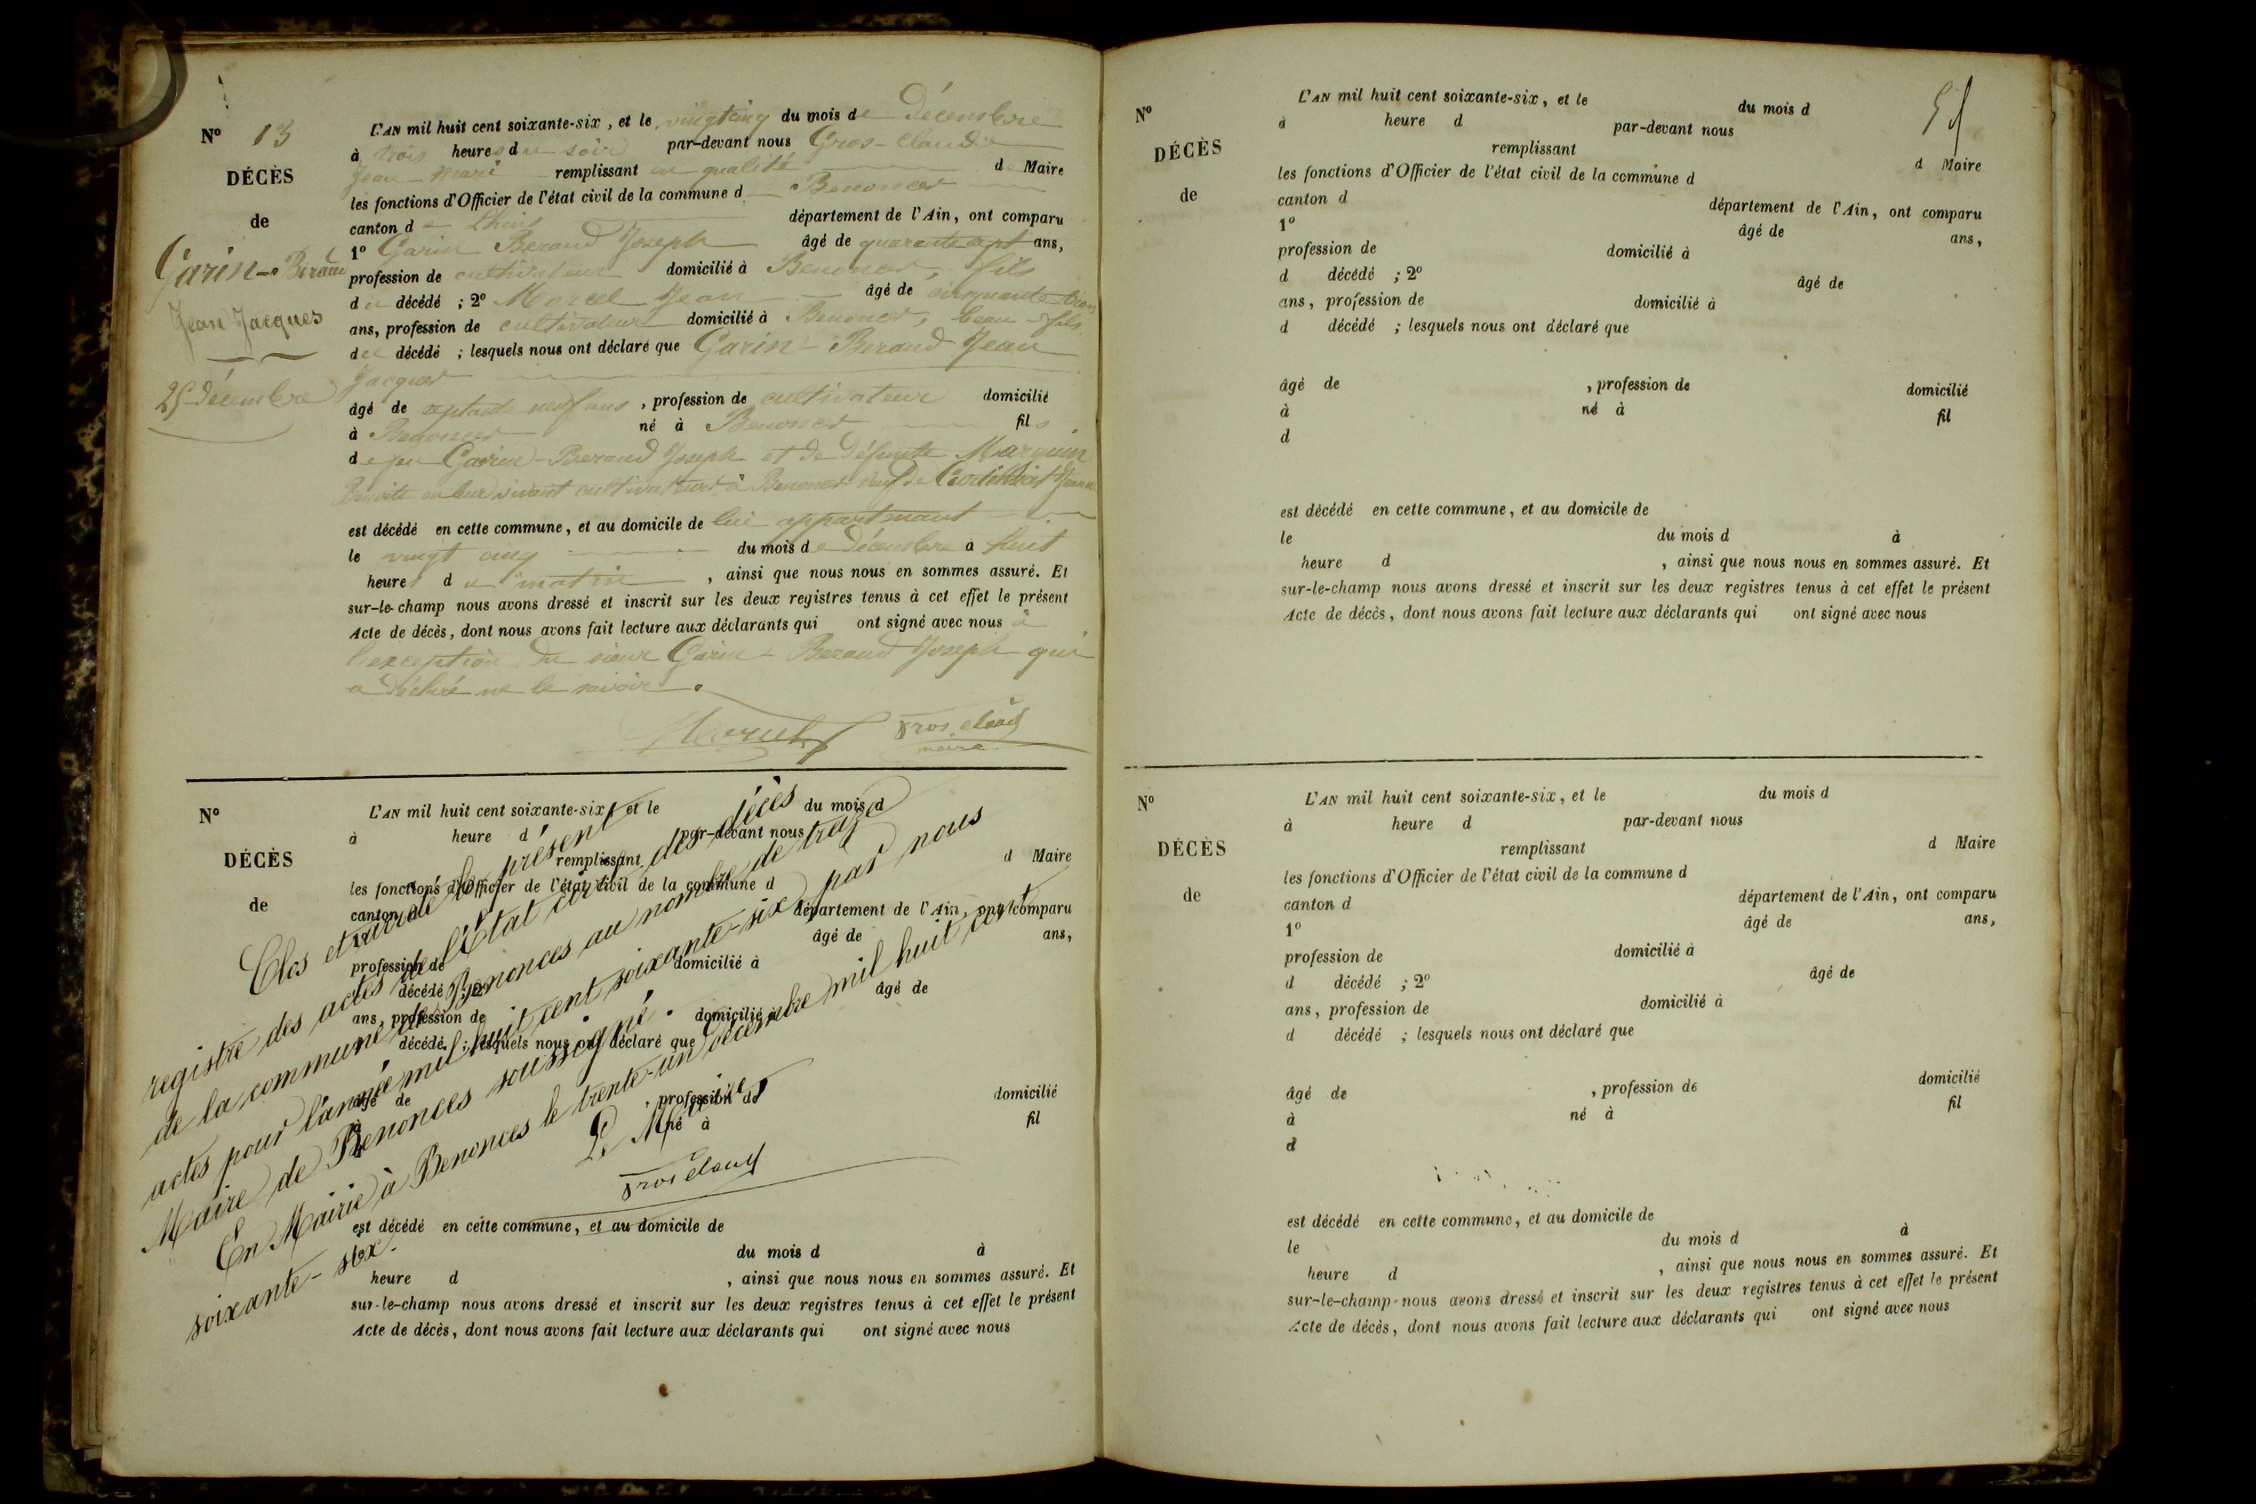 N° 13
DÉCÈS
de
Garin-Beraud
Jean Jacques
25 décembre
L'AN mil huit cent soixante-six, et le vingt cinq du mois de Décembre
à trois heures du soir par-devant nous Gros-Claude
Jean-Mari remplissant en qualité de Maire
les fonctions d'Officier de l'état civil de la commune d Benonces
canton de Lhuis département de l'Ain, ont comparu
1° Garin Beraud Joseph âgé de quarante sept ans,
profession de cultivateur domicilié à Benonces, fils
du décédé ; 2° Marcel Jean âgé de cinquante trois
ans, profession de cultivateur domicilié à Benonces, beau-fils
du décédé ; lesquels nous ont déclaré que Garin-Beraud Jean
Jacques
âgé de septante neuf ans, profession de cultivateur domicilié
à Benonces né à Benonces fils
de feu Garin-Beraud Joseph et de défunte Marquin
en leur vivant cultivateurs à Benonces veuf de
est décédé en cette commune, et au domicile de lui appartenant
le vingt cinq du mois de Décembre à huit
heures du matin, ainsi que nous nous en sommes assuré. Et
sur-le-champ nous avons dressé et inscrit sur les deux registres tenus à cet effet le présent
Acte de décès, dont nous avons fait lecture aux déclarants qui ont signé avec nous à
l'exception du sieur Garin-Beraud Joseph qui
a déclaré ne le savoir.
Marcel Gros claud
maire
N°
DÉCÈS
de
L'AN mil huit cent soixante-six, et le du mois d
à heure d par-devant nous
remplissant d Maire
les fonctions d'Officier de l'état civil de la commune d
canton d département de l'Ain, ont comparu
1° âgé de ans,
profession de domicilié à
d décédé ; 2° âgé de
ans, profession de domicilié à
d décédé ; lesquels nous ont déclaré que
âgé de , profession de domicilié
à né à fil
d
est décédé en cette commune, et au domicile de
le du mois d à
heure d , ainsi que nous nous en sommes assuré. Et
sur-le-champ nous avons dressé et inscrit sur les deux registres tenus à cet effet le présent
Acte de décès, dont nous avons fait lecture aux déclarants qui ont signé avec nous
Clos et arrêté le présent
registre des actes de l'État civil des décès
de la commune de Benonces au nombre de treize
actes pour l'année mil huit cent soixante-six par nous
Maire de Benonces soussigné.
En Mairie à Benonces le trente-un décembre mil huit cent
soixante-six.
Le Maire,
Gros claud
N°
DÉCÈS
de
L'AN mil huit cent soixante-six, et le du mois d
à heure d par-devant nous
remplissant d Maire
les fonctions d'Officier de l'état civil de la commune d
canton d département de l'Ain, ont comparu
1° âgé de ans,
profession de domicilié à
d décédé ; 2° âgé de
ans, profession de domicilié à
d décédé ; lesquels nous ont déclaré que
âgé de , profession de domicilié
à né à fil
d
est décédé en cette commune, et au domicile de
le du mois d à
heure d , ainsi que nous nous en sommes assuré. Et
sur-le-champ nous avons dressé et inscrit sur les deux registres tenus à cet effet le présent
Acte de décès, dont nous avons fait lecture aux déclarants qui ont signé avec nous
N°
DÉCÈS
de
L'AN mil huit cent soixante-six, et le du mois d
à heure d par-devant nous
remplissant d Maire
les fonctions d'Officier de l'état civil de la commune d
canton d département de l'Ain, ont comparu
1° âgé de ans,
profession de domicilié à
d décédé ; 2° âgé de
ans, profession de domicilié à
d décédé ; lesquels nous ont déclaré que
âgé de , profession de domicilié
à né à fil
d
est décédé en cette commune, et au domicile de
le du mois d à
heure d , ainsi que nous nous en sommes assuré. Et
sur-le-champ nous avons dressé et inscrit sur les deux registres tenus à cet effet le présent
Acte de décès, dont nous avons fait lecture aux déclarants qui ont signé avec nous